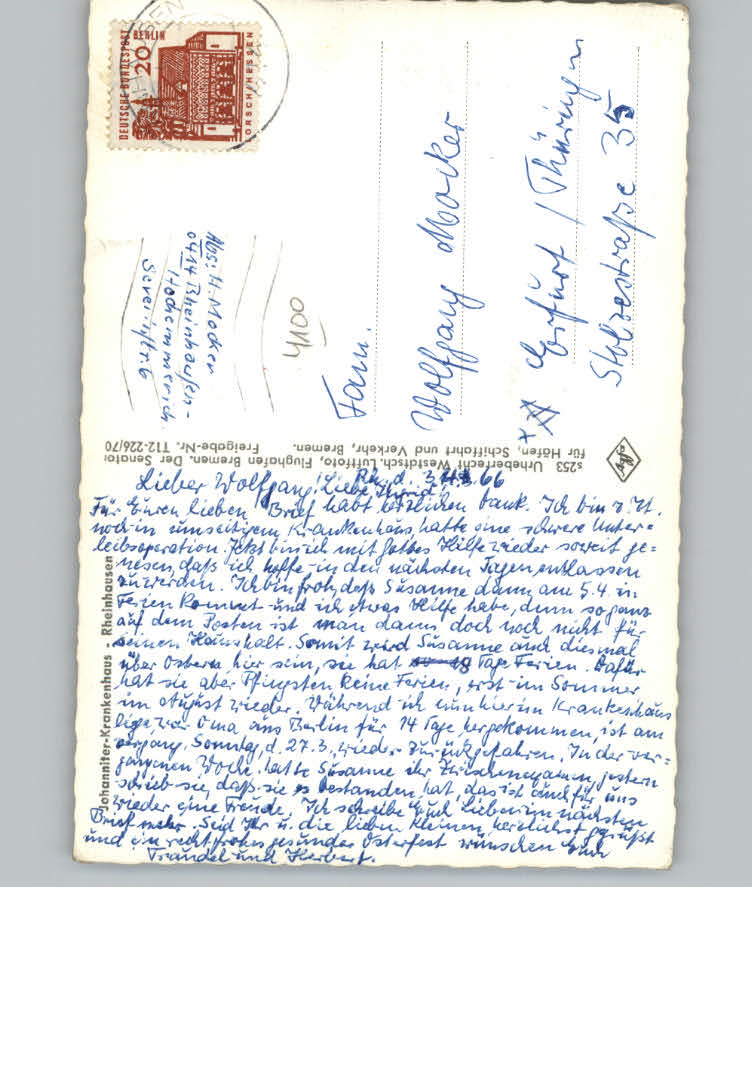 DEUTSCHE BUNDESPOST BERLIN
20
LORSCH/HESSEN
Abs: H. Mocker
414 Rheinhausen-
Hochemmerich
4100
Fam.
Wolfgang Mocker
xx Erfurt / Thüringen
Stolzestraße 35
s253 Urheberrecht Westdtsch. Luftfoto, Flughafen Bremen. Der Senator
für Häfen, Schiffahrt und Verkehr, Bremen. Freigabe-Nr. T12-226/70
Johanniter-Krankenhaus - Rheinhausen
Rh., d. 31.3.66
Lieber Wolfgang! Liebe
Für Euren lieben Brief habt herzlichen Dank. Ich bin z. Zt.
noch in umseitigem Krankenhaus, hatte eine schwere Unter=
leibsoperation. Jetzt bin ich mit Gottes Hilfe wieder soweit ge=
nesen, daß ich hoffe in den nächsten Tagen entlassen
zu werden. Ich bin froh, daß Susanne dann am 5.4. in
Ferien kommt und ich etwas Hilfe habe, denn so ganz
auf dem Posten ist man dann doch noch nicht für
seinen Haushalt. Somit wird Susanne auch diesmal
über Ostern hier sein, sie hat 18 Tage Ferien. Dafür
hat sie aber Pfingsten keine Ferien, erst im Sommer
im August wieder. Während ich nun hier im Krankenhaus
liege, war Oma aus Berlin für 14 Tage hergekommen, ist am
vergang. Sonntag, d. 27.3. wieder zurückgefahren. In der ver=
gangenen Woche hatte Susanne ihr Zwischenexamen, gestern
schrieb sie, daß sie es bestanden hat, das ist auch für uns
wieder eine Freude. Ich schreibe Euch Lieben im nächsten
Brief mehr. Seid Ihr u. die lieben Kleinen herzlichst gegrüßt
und ein recht frohes gesundes Osterfest wünschen Euch
Traudel und Herbert.